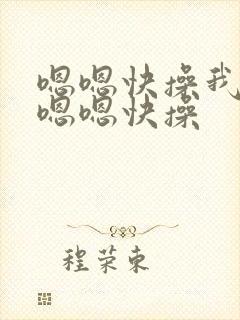 嗯嗯快操我
嗯嗯快操
程荣东